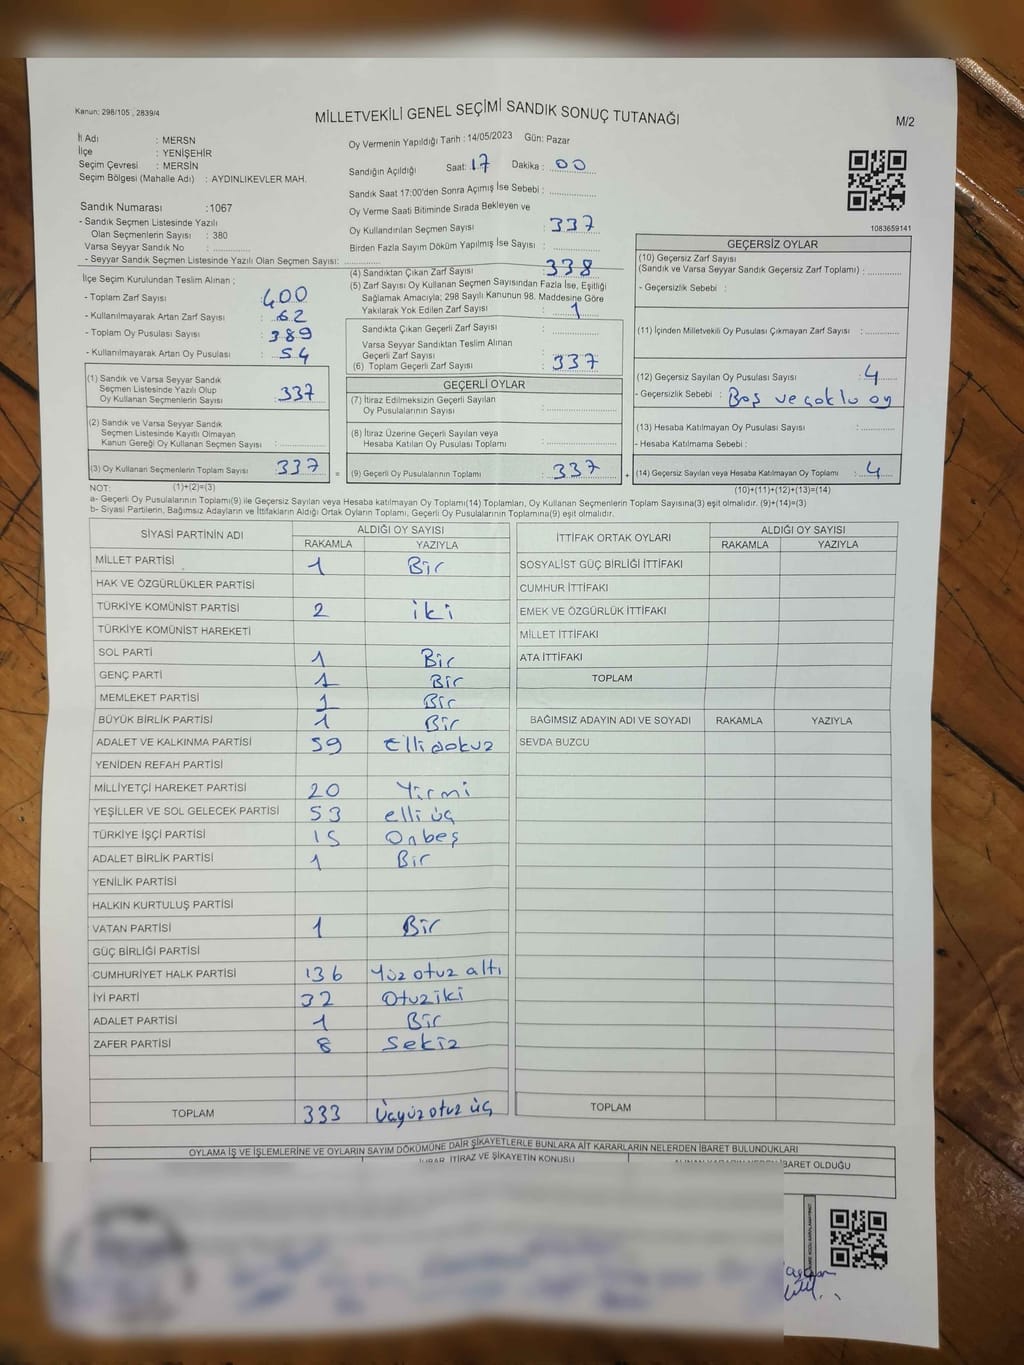 Kanun: 298/105 , 2839/4
MİLLETVEKİLİ GENEL SEÇİMİ SANDIK SONUÇ TUTANAĞI
M/2
İl Adı : MERSN
İlçe : YENİŞEHİR
Seçim Çevresi : MERSİN
Seçim Bölgesi (Mahalle Adı) : AYDINLIKEVLER MAH.
Sandık Numarası :1067
- Sandık Seçmen Listesinde Yazılı
Olan Seçmenlerin Sayısı : 380
Varsa Seyyar Sandık No :
- Seyyar Sandık Seçmen Listesinde Yazılı Olan Seçmen Sayısı:
Oy Vermenin Yapıldığı Tarih : 14/05/2023 Gün: Pazar
Sandığın Açıldığı Saat: 17 Dakika : 00
Sandık Saat 17:00'den Sonra Açımış İse Sebebi :
Oy Verme Saati Bitiminde Sırada Bekleyen ve
Oy Kullandırılan Seçmen Sayısı : 337
Birden Fazla Sayım Döküm Yapılmış İse Sayısı :
1083659141
İlçe Seçim Kurulundan Teslim Alınan ;
- Toplam Zarf Sayısı : 400
- Kullanılmayarak Artan Zarf Sayısı : 62
- Toplam Oy Pusulası Sayısı : 389
- Kullanılmayarak Artan Oy Pusulası : 54
(1) Sandık ve Varsa Seyyar Sandık
Seçmen Listesinde Yazılı Olup
Oy Kullanan Seçmenlerin Sayısı : 337
(2) Sandık ve Varsa Seyyar Sandık
Seçmen Listesinde Kayıtlı Olmayan
Kanun Gereği Oy Kullanan Seçmen Sayısı :
(3) Oy Kullanan Seçmenlerin Toplam Sayısı : 337 =
(4) Sandıktan Çıkan Zarf Sayısı : 338
(5) Zarf Sayısı Oy Kullanan Seçmen Sayısından Fazla İse, Eşitliği
Sağlamak Amacıyla; 298 Sayılı Kanunun 98. Maddesine Göre
Yakılarak Yok Edilen Zarf Sayısı : 1
Sandıkta Çıkan Geçerli Zarf Sayısı :
Varsa Seyyar Sandıktan Teslim Alınan
Geçerli Zarf Sayısı :
(6) Toplam Geçerli Zarf Sayısı : 337
GEÇERLİ OYLAR
(7) İtiraz Edilmeksizin Geçerli Sayılan
Oy Pusulalarının Sayısı :
(8) İtiraz Üzerine Geçerli Sayılan veya
Hesaba Katılan Oy Pusulası Toplamı :
(9) Geçerli Oy Pusulalarının Toplamı : 337 +
GEÇERSİZ OYLAR
(10) Geçersiz Zarf Sayısı
(Sandık ve Varsa Seyyar Sandık Geçersiz Zarf Toplamı) :
- Geçersizlik Sebebi :
(11) İçinden Milletvekili Oy Pusulası Çıkmayan Zarf Sayısı :
(12) Geçersiz Sayılan Oy Pusulası Sayısı : 4
- Geçersizlik Sebebi : Boş ve çoklu oy
(13) Hesaba Katılmayan Oy Pusulası Sayısı :
- Hesaba Katılmama Sebebi :
(14) Geçersiz Sayılan veya Hesaba Katılmayan Oy Toplamı : 4
NOT: (1)+(2)=(3)
(10)+(11)+(12)+(13)=(14)
a- Geçerli Oy Pusulalarının Toplamı(9) ile Geçersiz Sayılan veya Hesaba katılmayan Oy Toplamı(14) Toplamları, Oy Kullanan Seçmenlerin Toplam Sayısına(3) eşit olmalıdır. (9)+(14)=(3)
b- Siyasi Partilerin, Bağımsız Adayların ve İttifakların Aldığı Ortak Oyların Toplamı, Geçerli Oy Pusulalarının Toplamına(9) eşit olmalıdır.
SİYASİ PARTİNİN ADI ALDIĞI OY SAYISI
RAKAMLA YAZIYLA
MİLLET PARTİSİ 1 Bir
HAK VE ÖZGÜRLÜKLER PARTİSİ
TÜRKİYE KOMÜNİST PARTİSİ 2 iki
TÜRKİYE KOMÜNİST HAREKETİ
SOL PARTİ 1 Bir
GENÇ PARTİ 1 Bir
MEMLEKET PARTİSİ 1 Bir
BÜYÜK BİRLİK PARTİSİ 1 Bir
ADALET VE KALKINMA PARTİSİ 59 Elli dokuz
YENİDEN REFAH PARTİSİ
MİLLİYETÇİ HAREKET PARTİSİ 20 Yirmi
YEŞİLLER VE SOL GELECEK PARTİSİ 53 elli üç
TÜRKİYE İŞÇİ PARTİSİ 15 Onbeş
ADALET BİRLİK PARTİSİ 1 Bir
YENİLİK PARTİSİ
HALKIN KURTULUŞ PARTİSİ
VATAN PARTİSİ 1 Bir
GÜÇ BİRLİĞİ PARTİSİ
CUMHURİYET HALK PARTİSİ 136 Yüz otuz altı
İYİ PARTİ 32 Otuz iki
ADALET PARTİSİ 1 Bir
ZAFER PARTİSİ 8 Sekiz
TOPLAM 333 Üçyüz otuz üç
İTTİFAK ORTAK OYLARI ALDIĞI OY SAYISI
RAKAMLA YAZIYLA
SOSYALİST GÜÇ BİRLİĞİ İTTİFAKI
CUMHUR İTTİFAKI
EMEK VE ÖZGÜRLÜK İTTİFAKI
MİLLET İTTİFAKI
ATA İTTİFAKI
TOPLAM
BAĞIMSIZ ADAYIN ADI VE SOYADI RAKAMLA YAZIYLA
SEVDA BUZCU
TOPLAM
OYLAMA İŞ VE İŞLEMLERİNE VE OYLARIN SAYIM DÖKÜMÜNE DAİR ŞİKAYETLERLE BUNLARA AİT KARARLARIN NELERDEN İBARET BULUNDUKLARI
İTİRAZ VE ŞİKAYETİN KONUSU
İBARET OLDUĞU